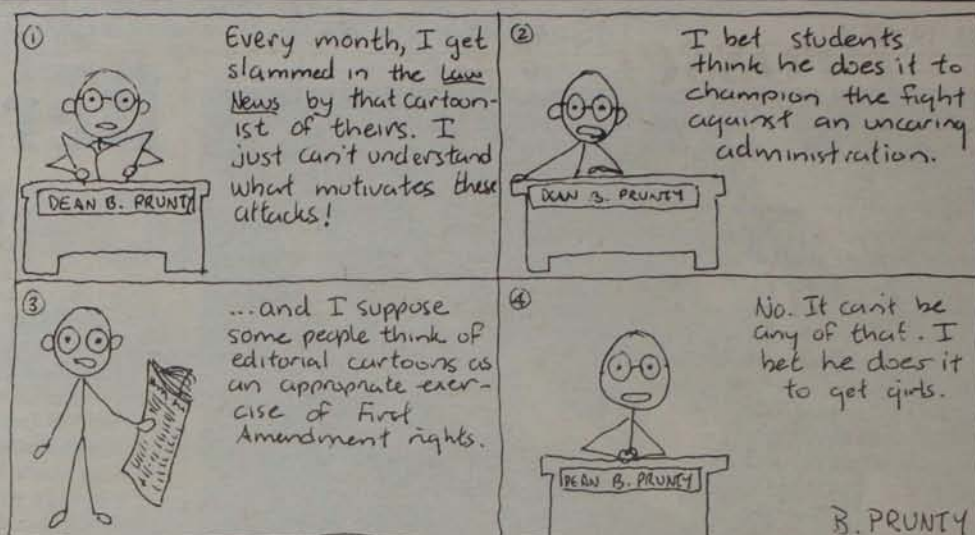 ①
Every month, I get
slammed in the Law
News by that cartoon-
ist of theirs. I
just can't understand
what motivates these
attacks!
DEAN B. PRUNTY
②
I bet students
think he does it to
champion the fight
against an uncaring
administration.
DEAN B. PRUNTY
③
...and I suppose
some people think of
editorial cartoons as
an appropriate exer-
cise of First
Amendment rights.
④
No. It can't be
any of that. I
bet he does it
to get girls.
DEAN B. PRUNTY
B. PRUNTY